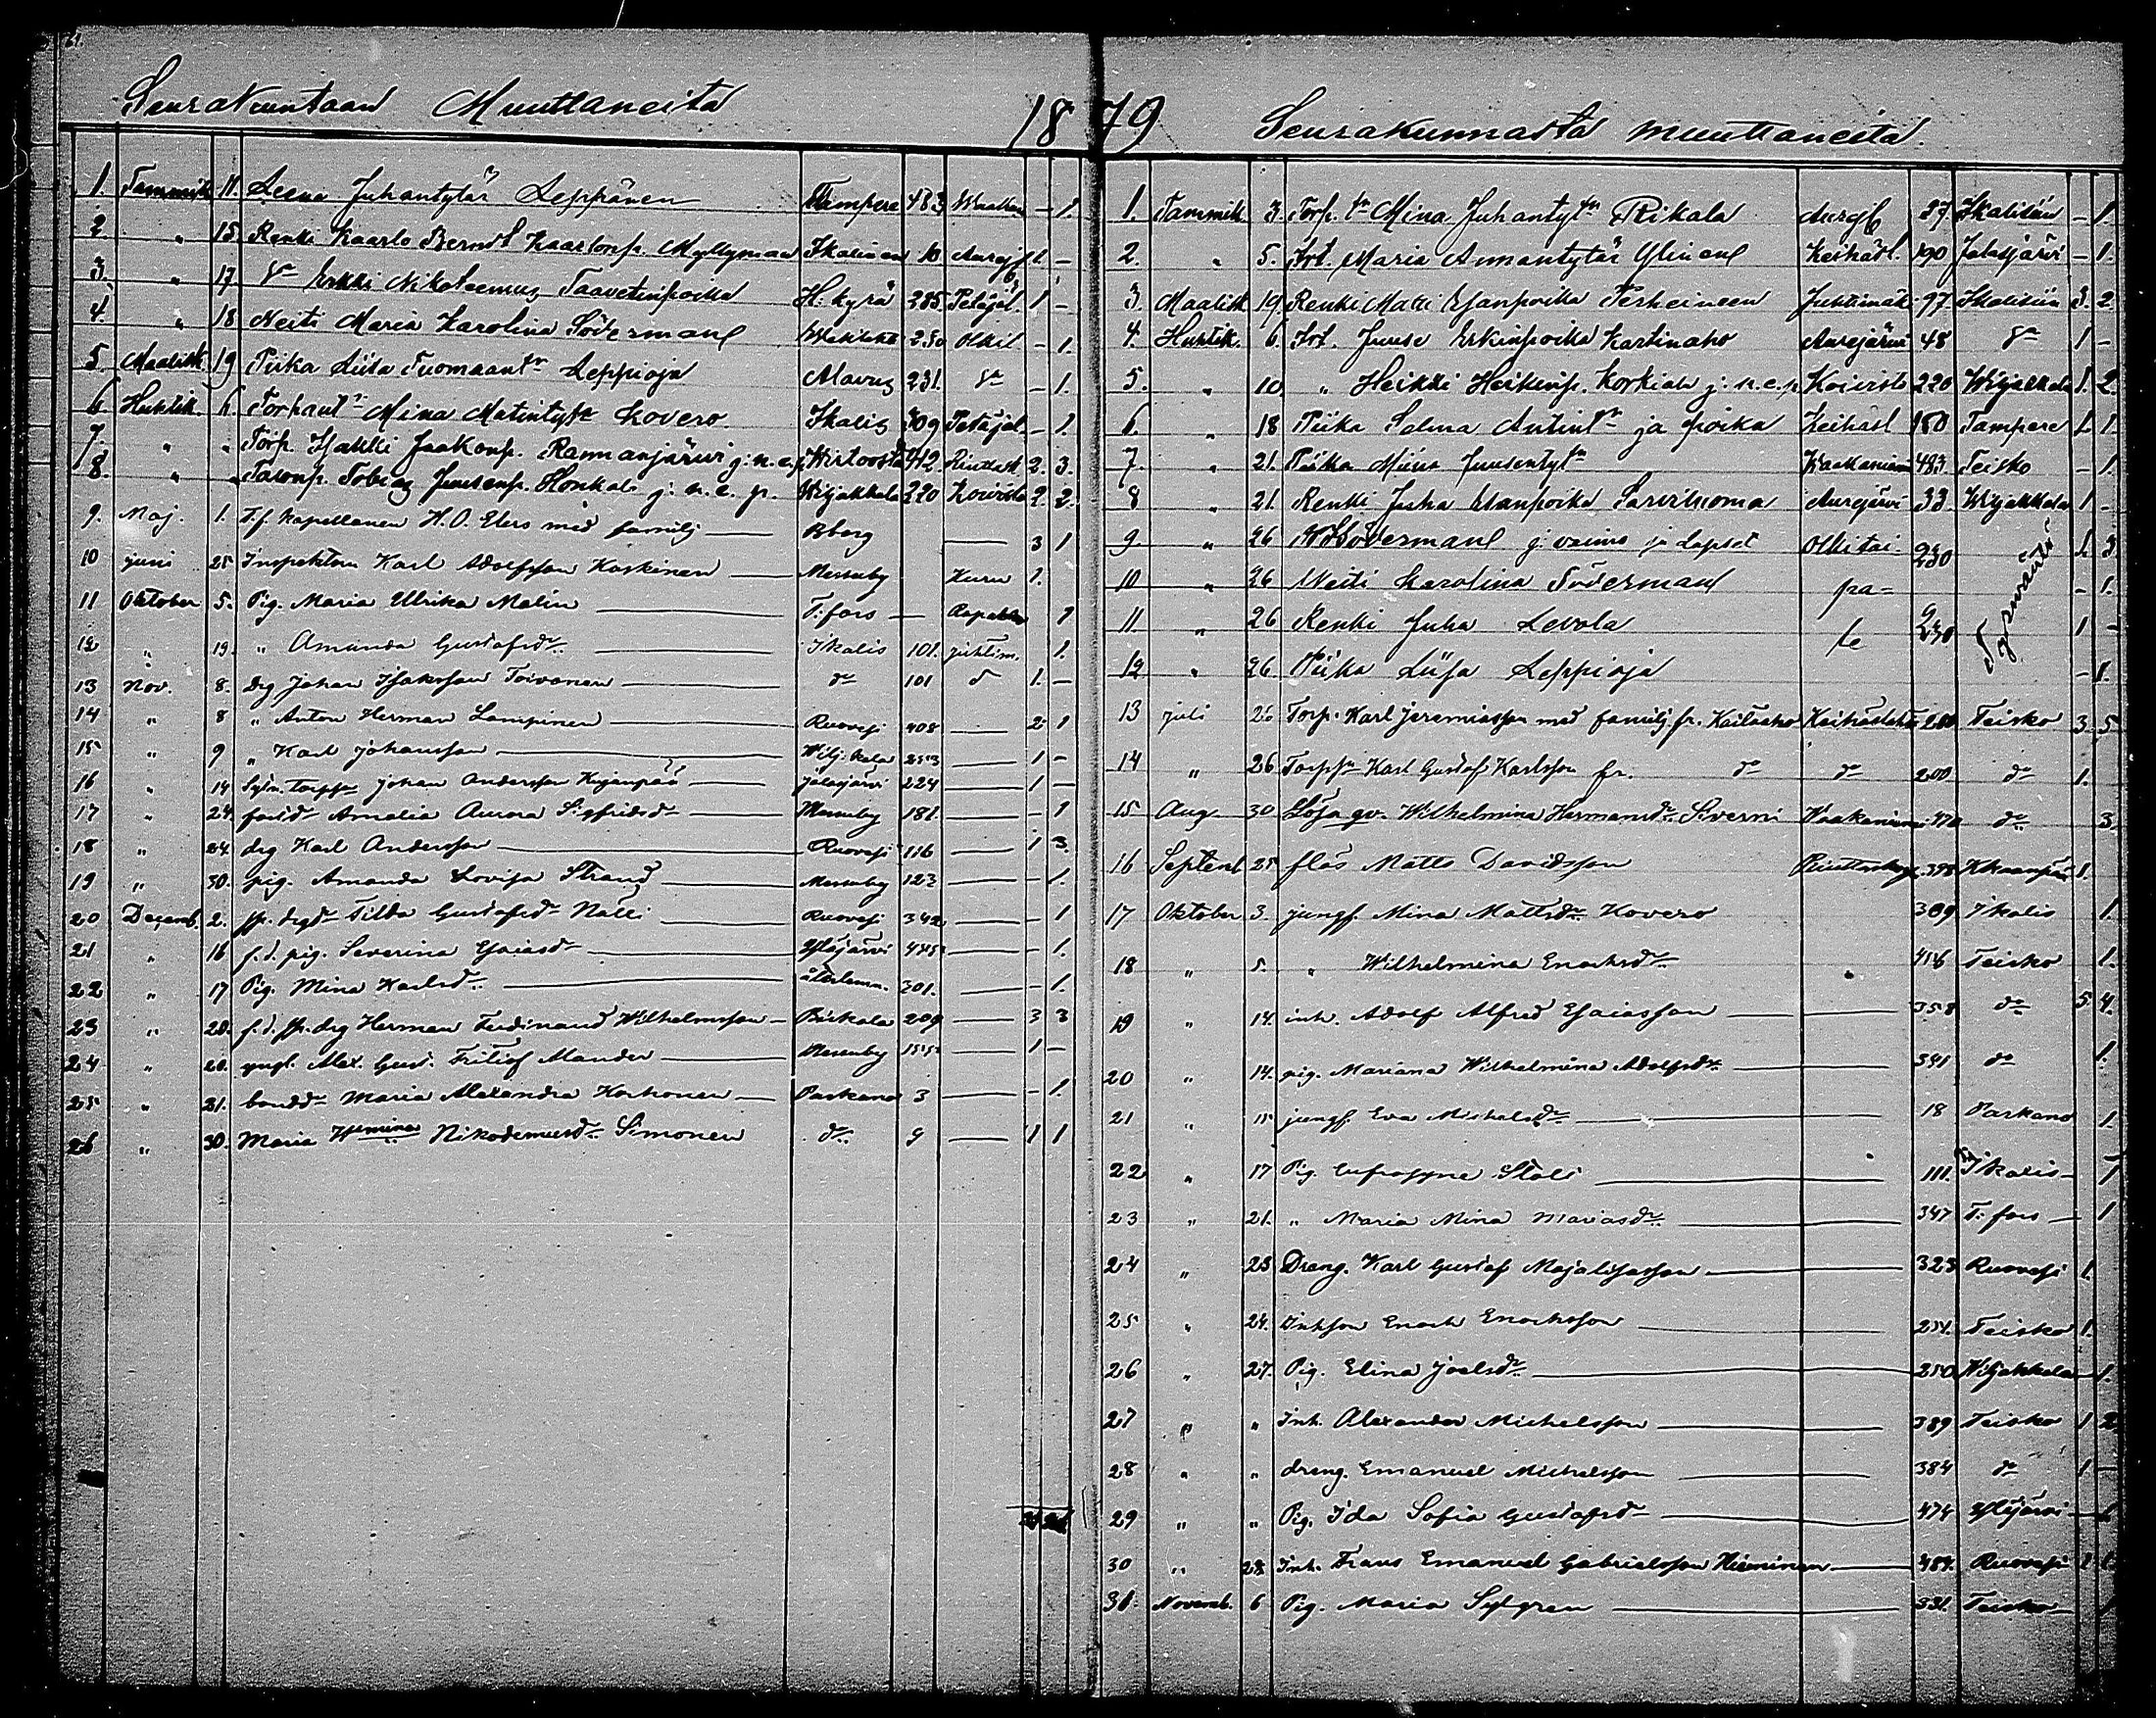 Seurakuntaan Muuttaneita 18
1. Tammik 11. Leena Juhantytär Leppänen Tampere 483 - 1.
2. " 15. Renki Kaarlo Berndt Kaarlonp. Myllyman Ikalinen 10 Aurejj 1 -
3. " 17 Erkki Nikolaemus Taavetinpoika H. kyrö 285 Petäjäl. 1 -
4. " 18 Neiti Maria Karolina Södermanl 230 Olkit - 1.
5. Maalisk 19 Piika Liisa Tuomaantr Leppioja Alavus 231. - 1.
6. Huhtik. 6. Mina Matintytr Kovero Ikalis 309 Petäjäl. - 1.
7. " " Torp. Jaakonp. Rannanjärvi j. n. e. p. 412 2. 3.
8. " " Talonp. Tobias Juusenp. Honkala j. n. e. p. Wiljakkala 220 Koivisto 2. 2.
9. Maj. 1. T.f. Kapellanen H. O. Elers med familj Bborg 3 1
10 juni 25 Inspektorn Karl Adolfsson Koskinen Messuby Kuru 1.
11 Oktober 5. Pig. Maria Ulrika Malin T:fors 1
12 " 19. " Amanda Gustafsdr Ikalis 101. juhtim. 1.
13 Nov. 8. drg Johan Isaksson Toivonen do 101 1. -
14 " 8 " Anton Herman Lampinen Ruovesi 408 2 1
15 " 9 " Karl Johansson Wilj. kala 1 -
16 " 14 Johan Andersson Jalasjärvi 224 1 -
17 " 24. Amalia Aurora Sigfridsdr Messuby 181. - 1
18 " 24 drg Karl Andersson Ruovesi 116 1 3.
19 " 30. pig. Amanda Lovisa Strand Messuby 123 - 1.
20 Decemb. 2. Tilda Gustafsdr Natti Ruovesi 342 - 1
21 " 16 f. d. pig. Severina Esaiasdr Ylöjärvi 445 - 1.
22 " 17 Pig. Mina Karlsdr 301. - 1.
23 " 20. f. d. drg Herman Ferdinand Wilhelmsson Birkala 209 3 3
24 " 20. yngl. Alex. Gust. Fritiof Mander Messuby 155 1 -
25 " 21. bondr Maria Alexandra Korhonen Parkano 3 - 1.
26 " 30. Maria Wmina Nikodemusdr Simonen do 9 1 1
79 Seurakunnasta muuttaneita.
1. Tammik 3. Torp. tr Mina Juhantytr Rikala Aurejb 37 Ikaliiin - 1
2. " 5. Maria Amantytär Ylinenl Keihäsl. 190 Jalasjärvi - 1.
3. Maalisk 19. Renki Matti Esanpoika Perheineen Juhtimäk 97 Ikaliiin 3. 2.
4. Huhtik. 6. Juuse Erkinpoika Kartinaho Aurejärvi 48 1 -
5. " 10. " Heikki Heikinp. Korkiala j. n. e. p. Koivisto 220 Wiljakkala 1. 2
6. " 18 Piika Selma Antintr ja poika Keihäsl 180 Tampere 1. 1.
7. " 21. Piika Miina Juusentytr 483. Teisko - 1.
8 " 21. Renki Juha Esanpoika Sarvikuoma Aurejärvi 33. Wiljakkala 1 -
9. " 26 Södermanl j. vaimo ja lapset Olkitai- 230 Tyrväntö 1. 3.
10 " 26 Neiti Karolina Södermanl pa= - 1.
11. " 26 Renki Juha Levola le 230 1 -
12. " 26 Piika Liisa Leppioja - 1.
13 juli 26 Torp. Karl Jeremiasson med familj fr. Kaitaaho Keihäslahti 200 Teisko 3. 5
14 " 26. Karl Gustaf Karlsson fr. do do 200 do 1.
15 Aug. 30 Lösa qv. Wilhelmina Hermansdr Siverni do 3.
16 Septemb 25 Matts Davidsson 398 1.
17 Oktober 3. jungf. Mina Mattsdr Kovero 309 Ikalis 1.
18 " 5. " Wilhelmina Enochsdr 456 Teisko 1.
19 " 14. inh. Adolf Alfred Esaiasson 358 do 5 4.
20 " 14. pig. Mariana Wilhelmina Adolfsdr 341 do 1.
21 " 15 jungf. Eva Michelsdr 18 Parkano 1.
22 " 17 Pig. Eufrosyne Ståhl 111. Ikalis 1
23 " 21. " Maria Mina Mariasdr 347 T:fors 1
24 " 23 Dräng. Karl Gustaf Majalisasson 323 Ruovesi 1.
25 " 24. Inhson Enoch Enochsson 251. Teisko 1.
26 " 27. Pig. Elina Joelsdr 250 Wiljakkala 1.
27 " " Inh. Alexander Michelsson 389 Teisko 1 2
28 " " dräng. Emanuel Michelsson 384 do 1 -
29 " " Pig. Ida Sofia Gustafsdr 474 Ylöjärvi 1
30 " 28 Inh. Frans Emanuel Gabrielsson Hieninen 484. Ruovesi 1 1
31. Novemb. 6 Pig. Maria Sjögren 331. Teisko 1